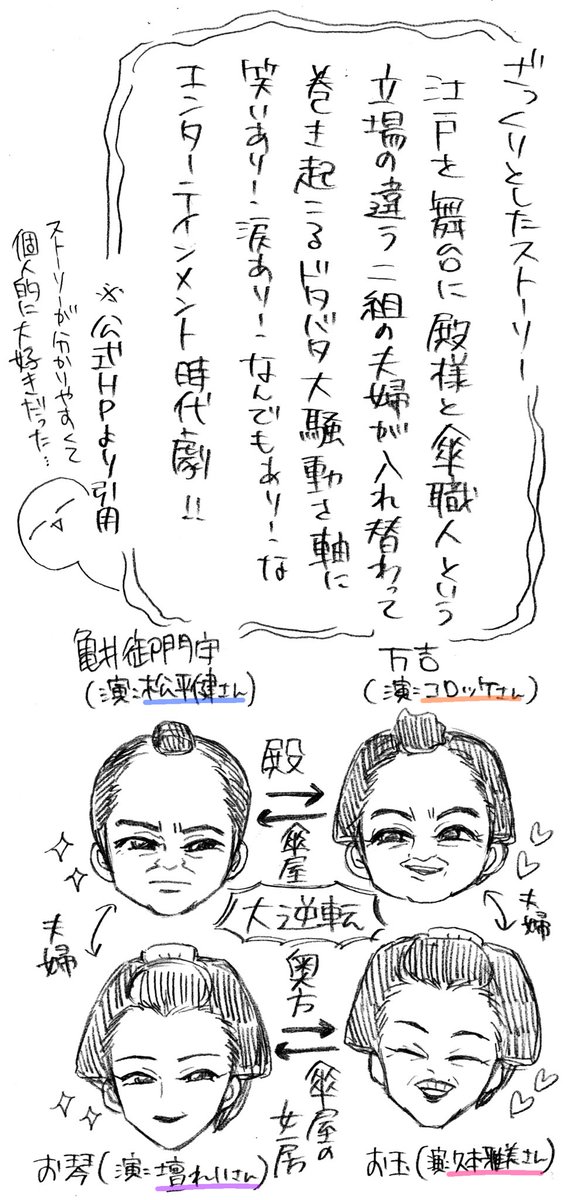 ざっくりとしたストーリー
江戸を舞台に殿様と傘職人という
立場の違う二組の夫婦が入れ替わって
巻き起こるドタバタ大騒動を軸に
笑いあり！涙あり！なんでもあり！な
エンターテインメント時代劇!!
※公式HPより引用
ストーリーが分かりやすくて
個人的に大好きだった…
万吉
(演:コロッケさん)
亀井御門守
(演:松平健さん)
殿
傘屋
大逆転
夫婦
夫婦
奥方
傘屋の
女房
お玉(演:久本雅美さん)
お琴(演:壇れいさん)